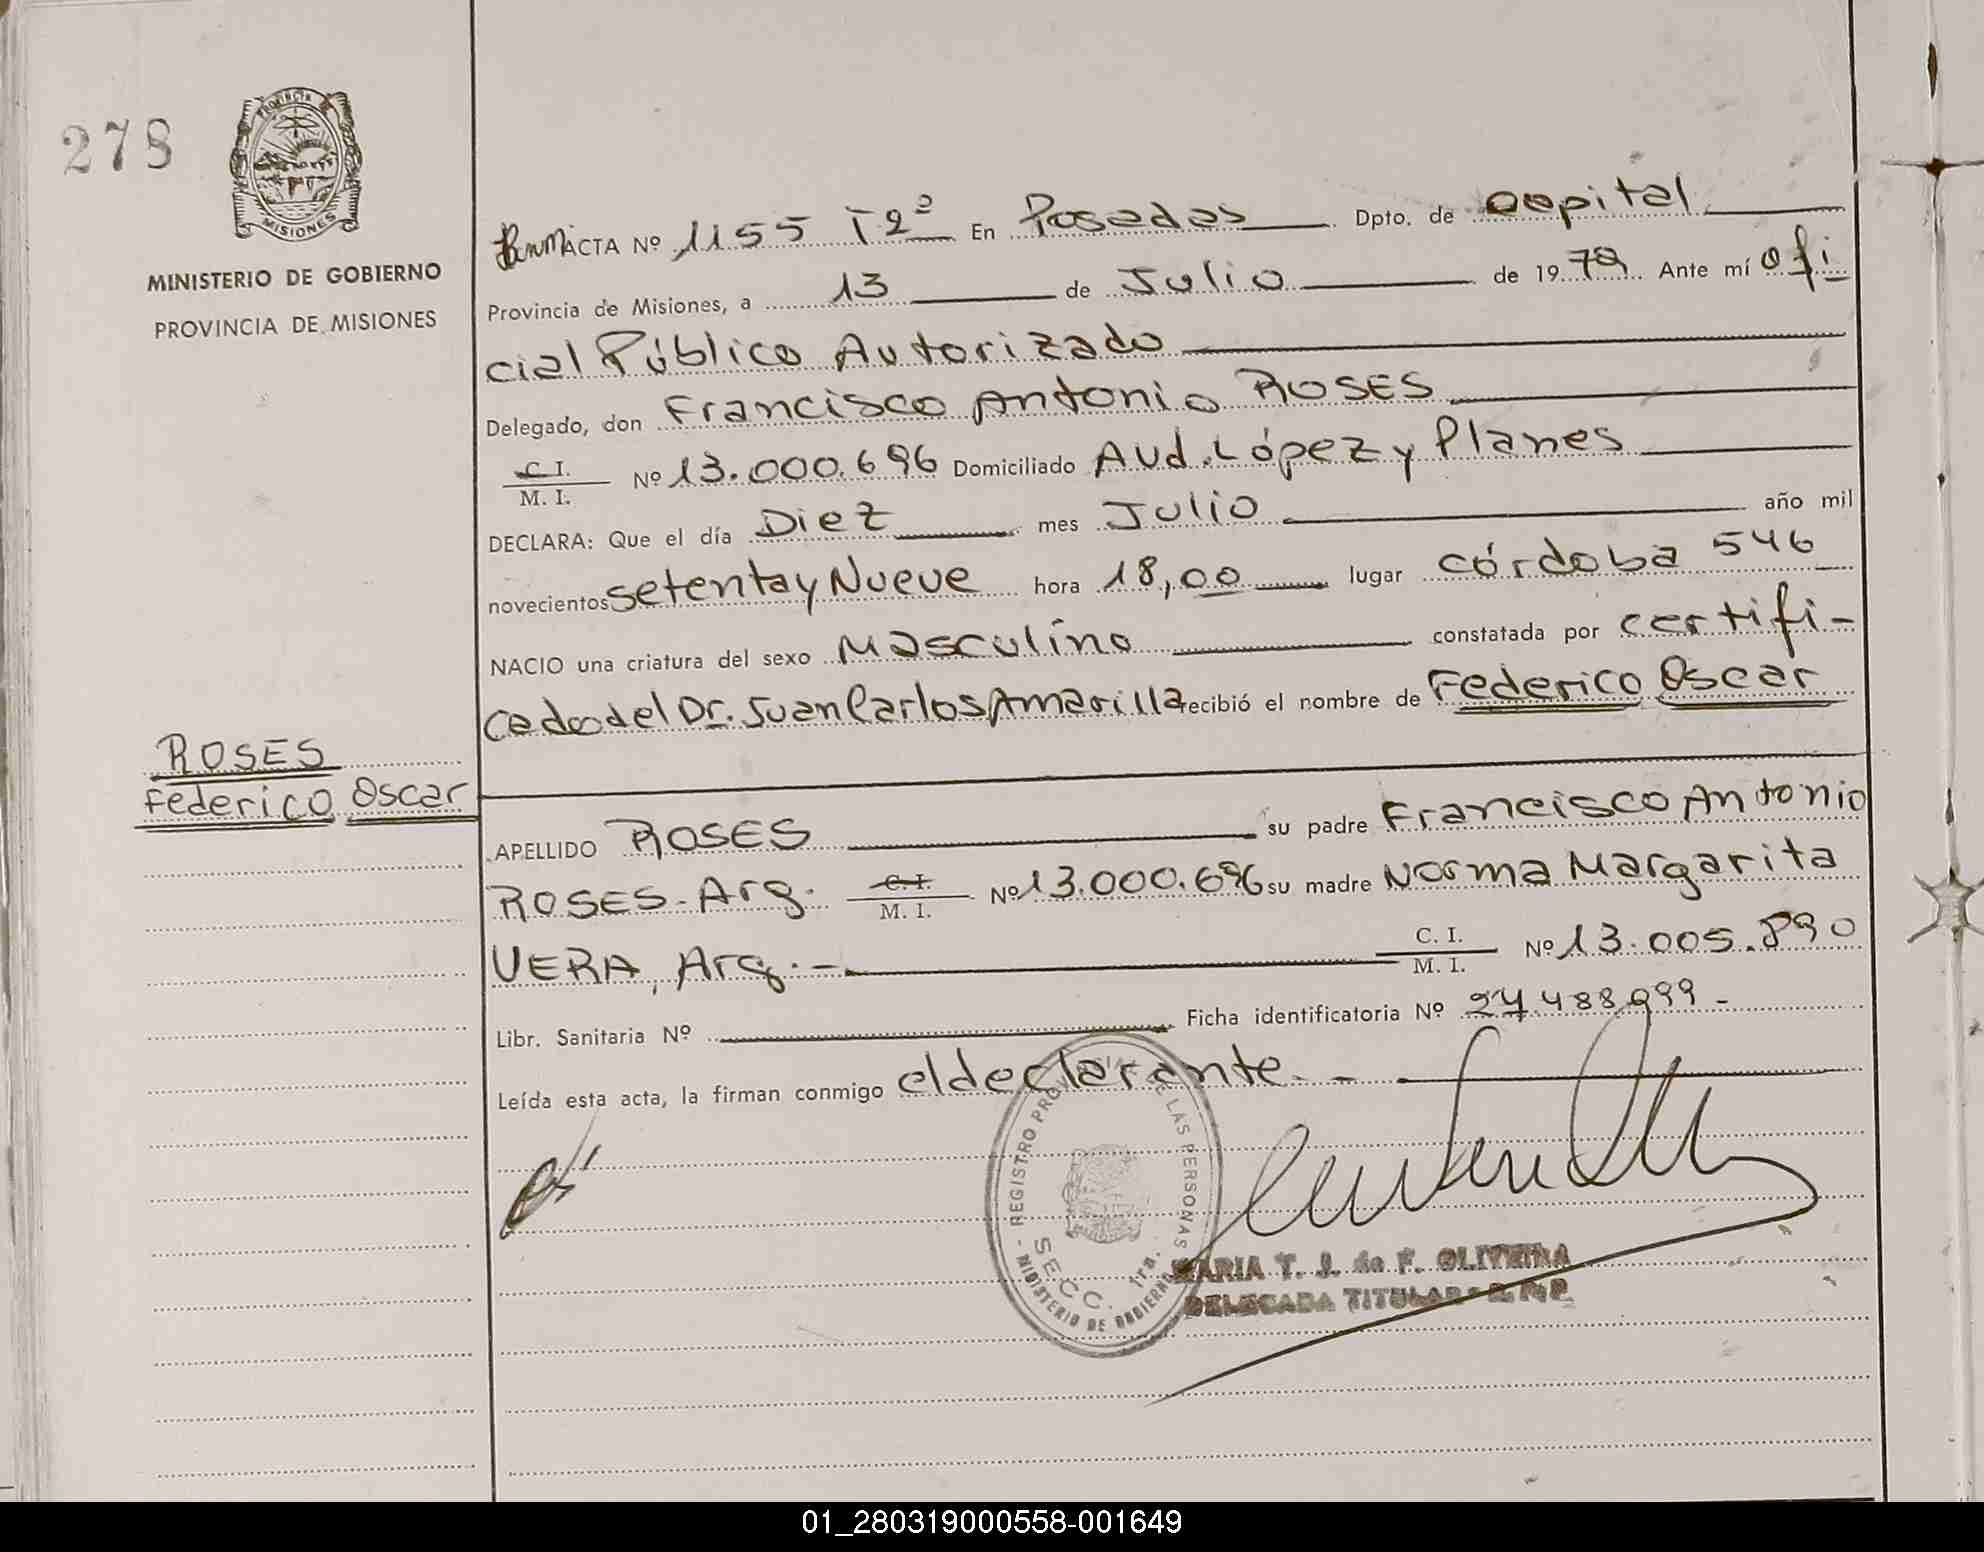 278
PROVINCIA
MISIONES
MINISTERIO DE GOBIERNO
PROVINCIA DE MISIONES
ROSES
Federico Oscar
ACTA Nº 1155 T2º En Posadas Dpto. de Capital
Provincia de Misiones, a 13 de Julio de 1979 Ante mí ofi
cial Público Autorizado
Delegado, don Francisco Antonio ROSES
C. I.
M. I. Nº 13.000.696 Domiciliado Avd. López y Planes
DECLARA: Que el día Diez mes Julio año mil
novecientos setenta y Nueve hora 18,00 lugar córdoba 546
NACIO una criatura del sexo Masculino constatada por certifi-
cado del Dr. Juan Carlos Amarilla recibió el nombre de Federico Oscar
APELLIDO ROSES su padre Francisco Antonio
ROSES. Arg. C. I.
M. I. Nº 13.000.696 su madre Norma Margarita
VERA, Arg.- C. I.
M. I. Nº 13.005.890
Libr. Sanitaria Nº Ficha identificatoria Nº 27.488.999-
Leída esta acta, la firman conmigo el declarante.-
REGISTRO PROVINCIAL DE LAS PERSONAS
SECC. 1ra.
MINISTERIO DE GOBIERNO
MARIA T. J. de F. OLIVEIRA
DELEGADA TITULAR
01_280319000558-001649